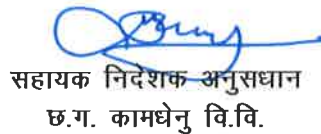 सहायक निदेशक अनुसधान
छ.ग. कामधेनु वि.वि.